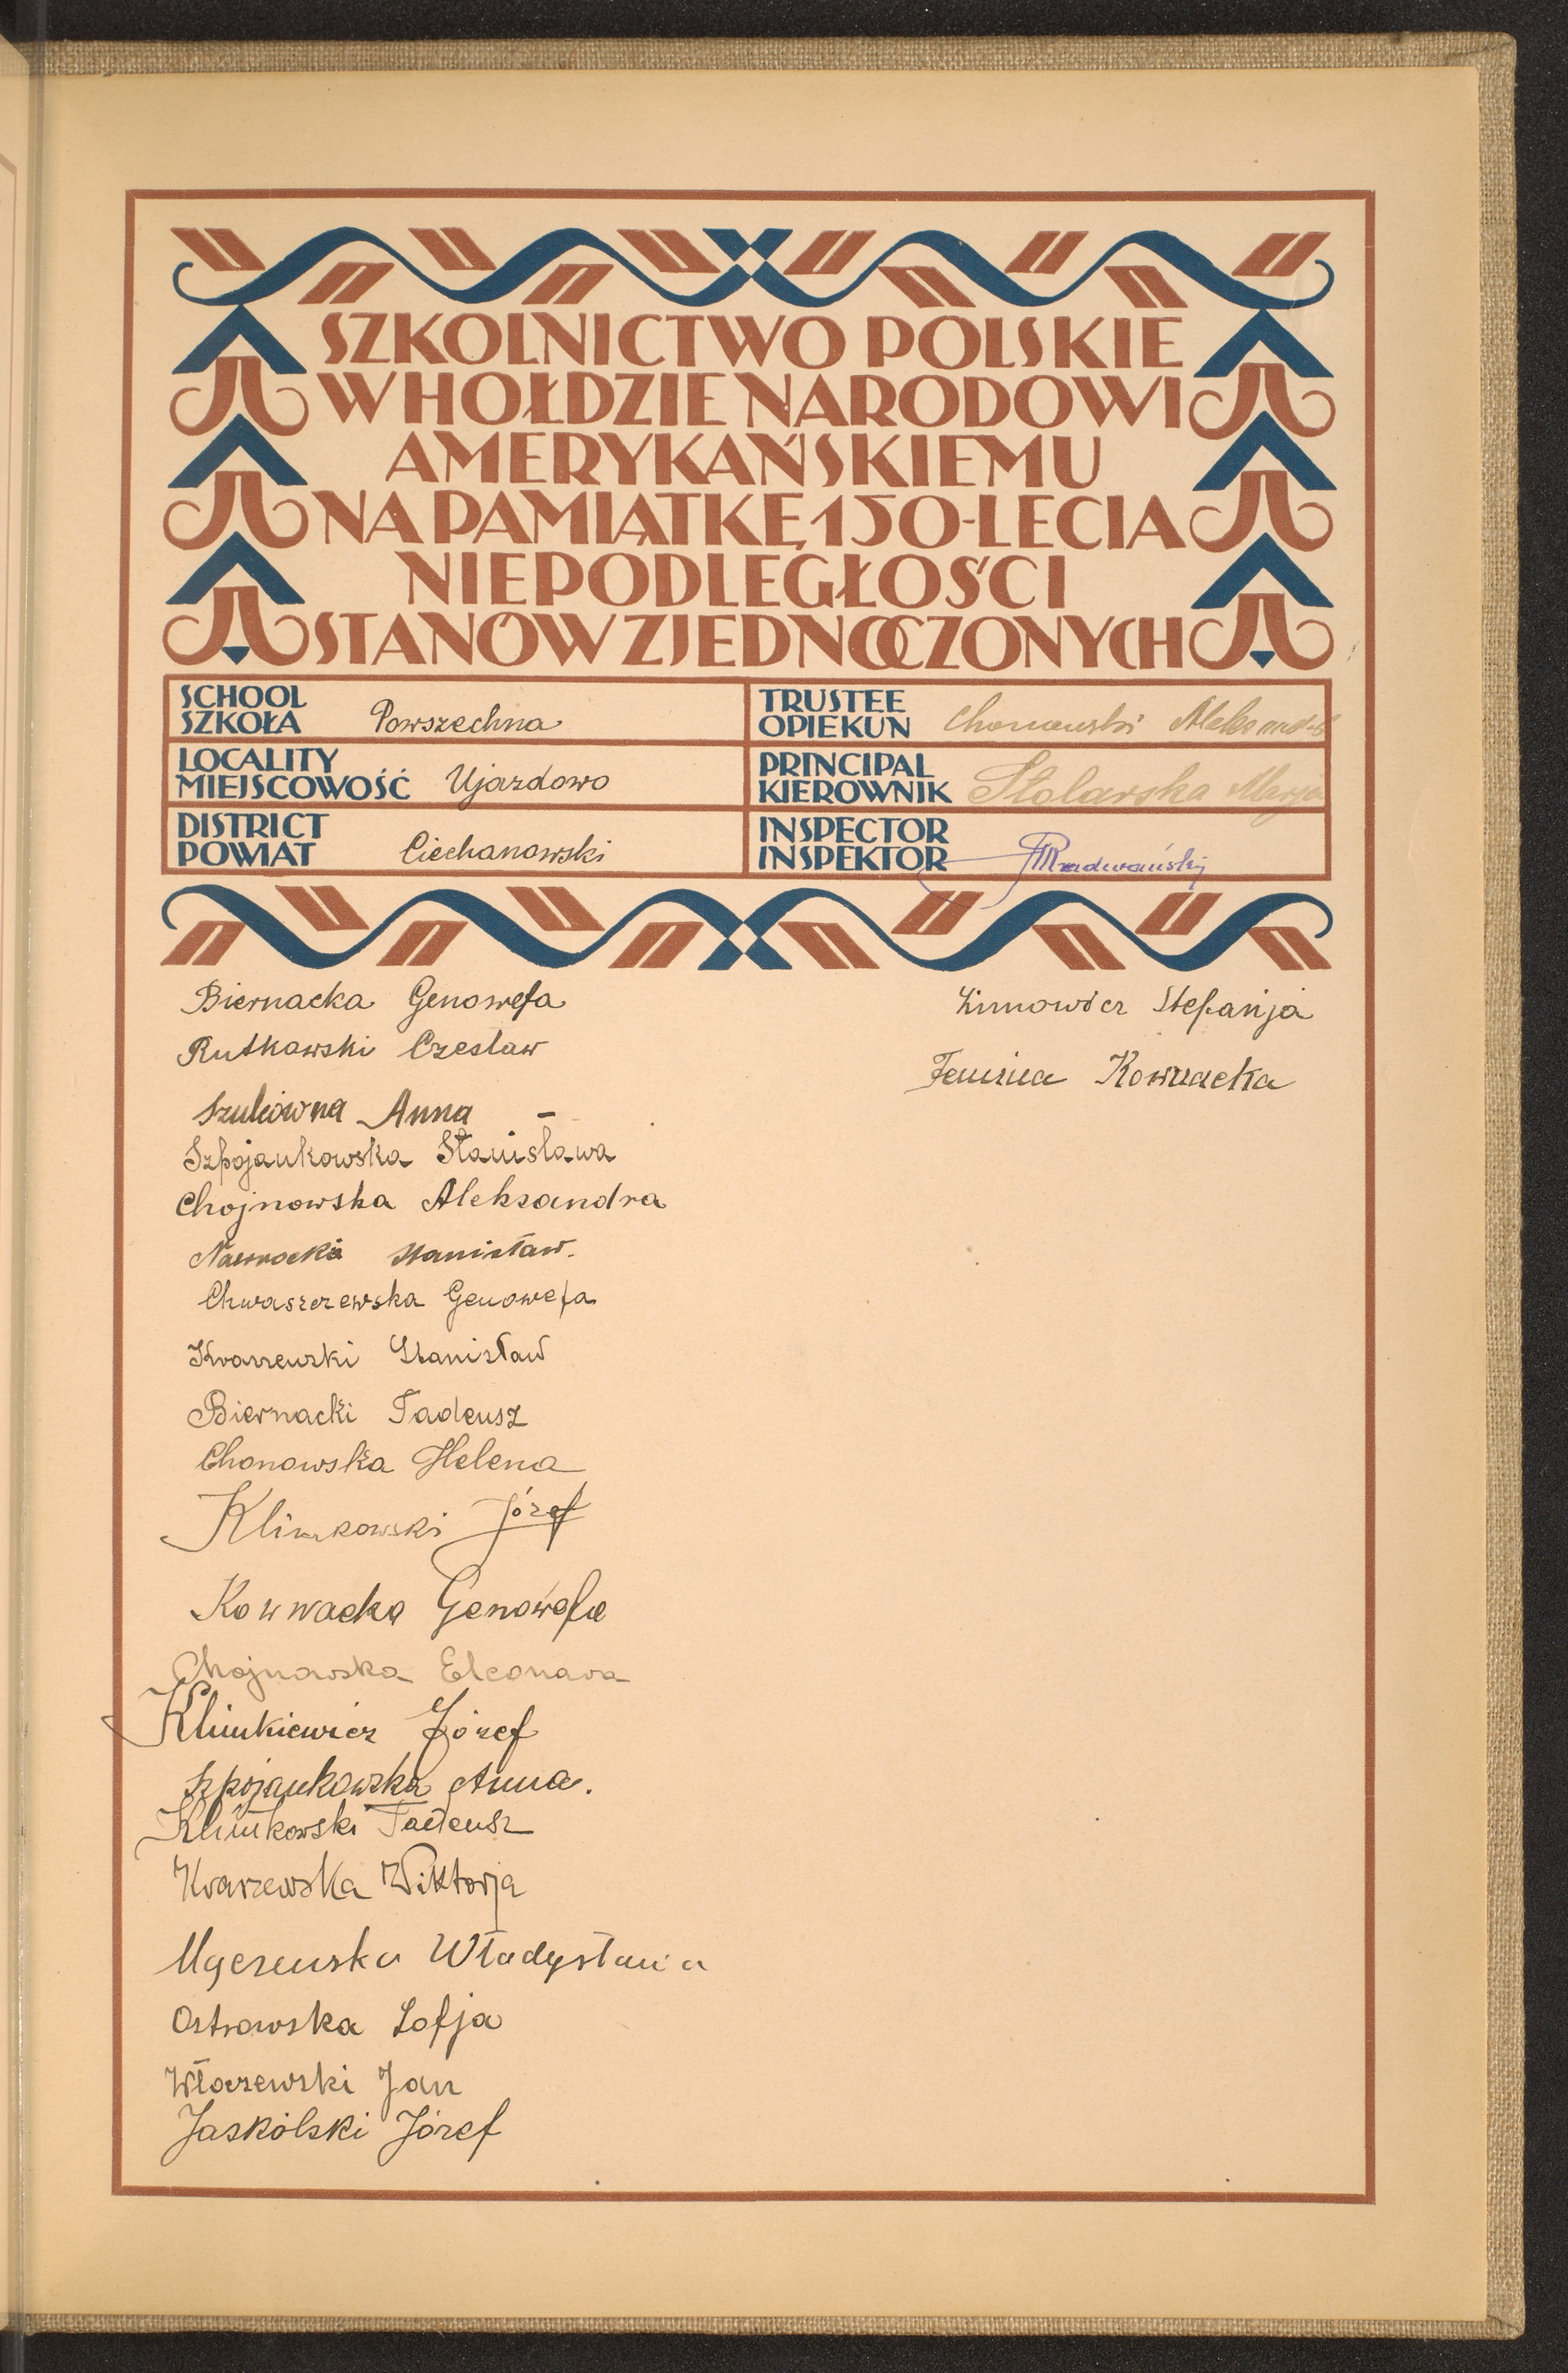 SZKOLNICTWO POLSKIE
W HOŁDZIE NARODOWI
AMERYKAŃSKIEMU
NA PAMIĄTKĘ 150-LECIA
NIEPODLEGŁOŚCI
STANÓW ZJEDNOCZONYCH
SCHOOL
SZKOŁA Powszechna
LOCALITY
MIEJSCOWOŚĆ Ujazdowo
DISTRICT
POWIAT Ciechanowski
TRUSTEE
OPIEKUN Chonowski Aleksander
PRINCIPAL
KIEROWNIK Stolarska Marja
INSPECTOR
INSPEKTOR Radwański
Biernacka Genowefa
Rutkowski Czesław
Szulcówna Anna
Szpojankowska Stanisława
Chojnowska Aleksandra
Nawrocki Stanisław.
Chwaszczewska Genowefa
Stanisław
Biernacki Tadeusz
Chonowska Helena
Klimkowski Józef
Kownacka Genowefa
Chojnowska Eleonara
Klimkiewicz Józef
Szpojankowska Anna.
Klimkowski Tadeusz
Wiktorja
Władysława
Ostrowska Zofja
Włoczewski Jan
Jaskólski Józef
Zimowicz Stefanja
Kownacka